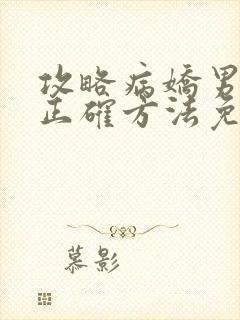 攻略病嬌男
正確方法免
慕影